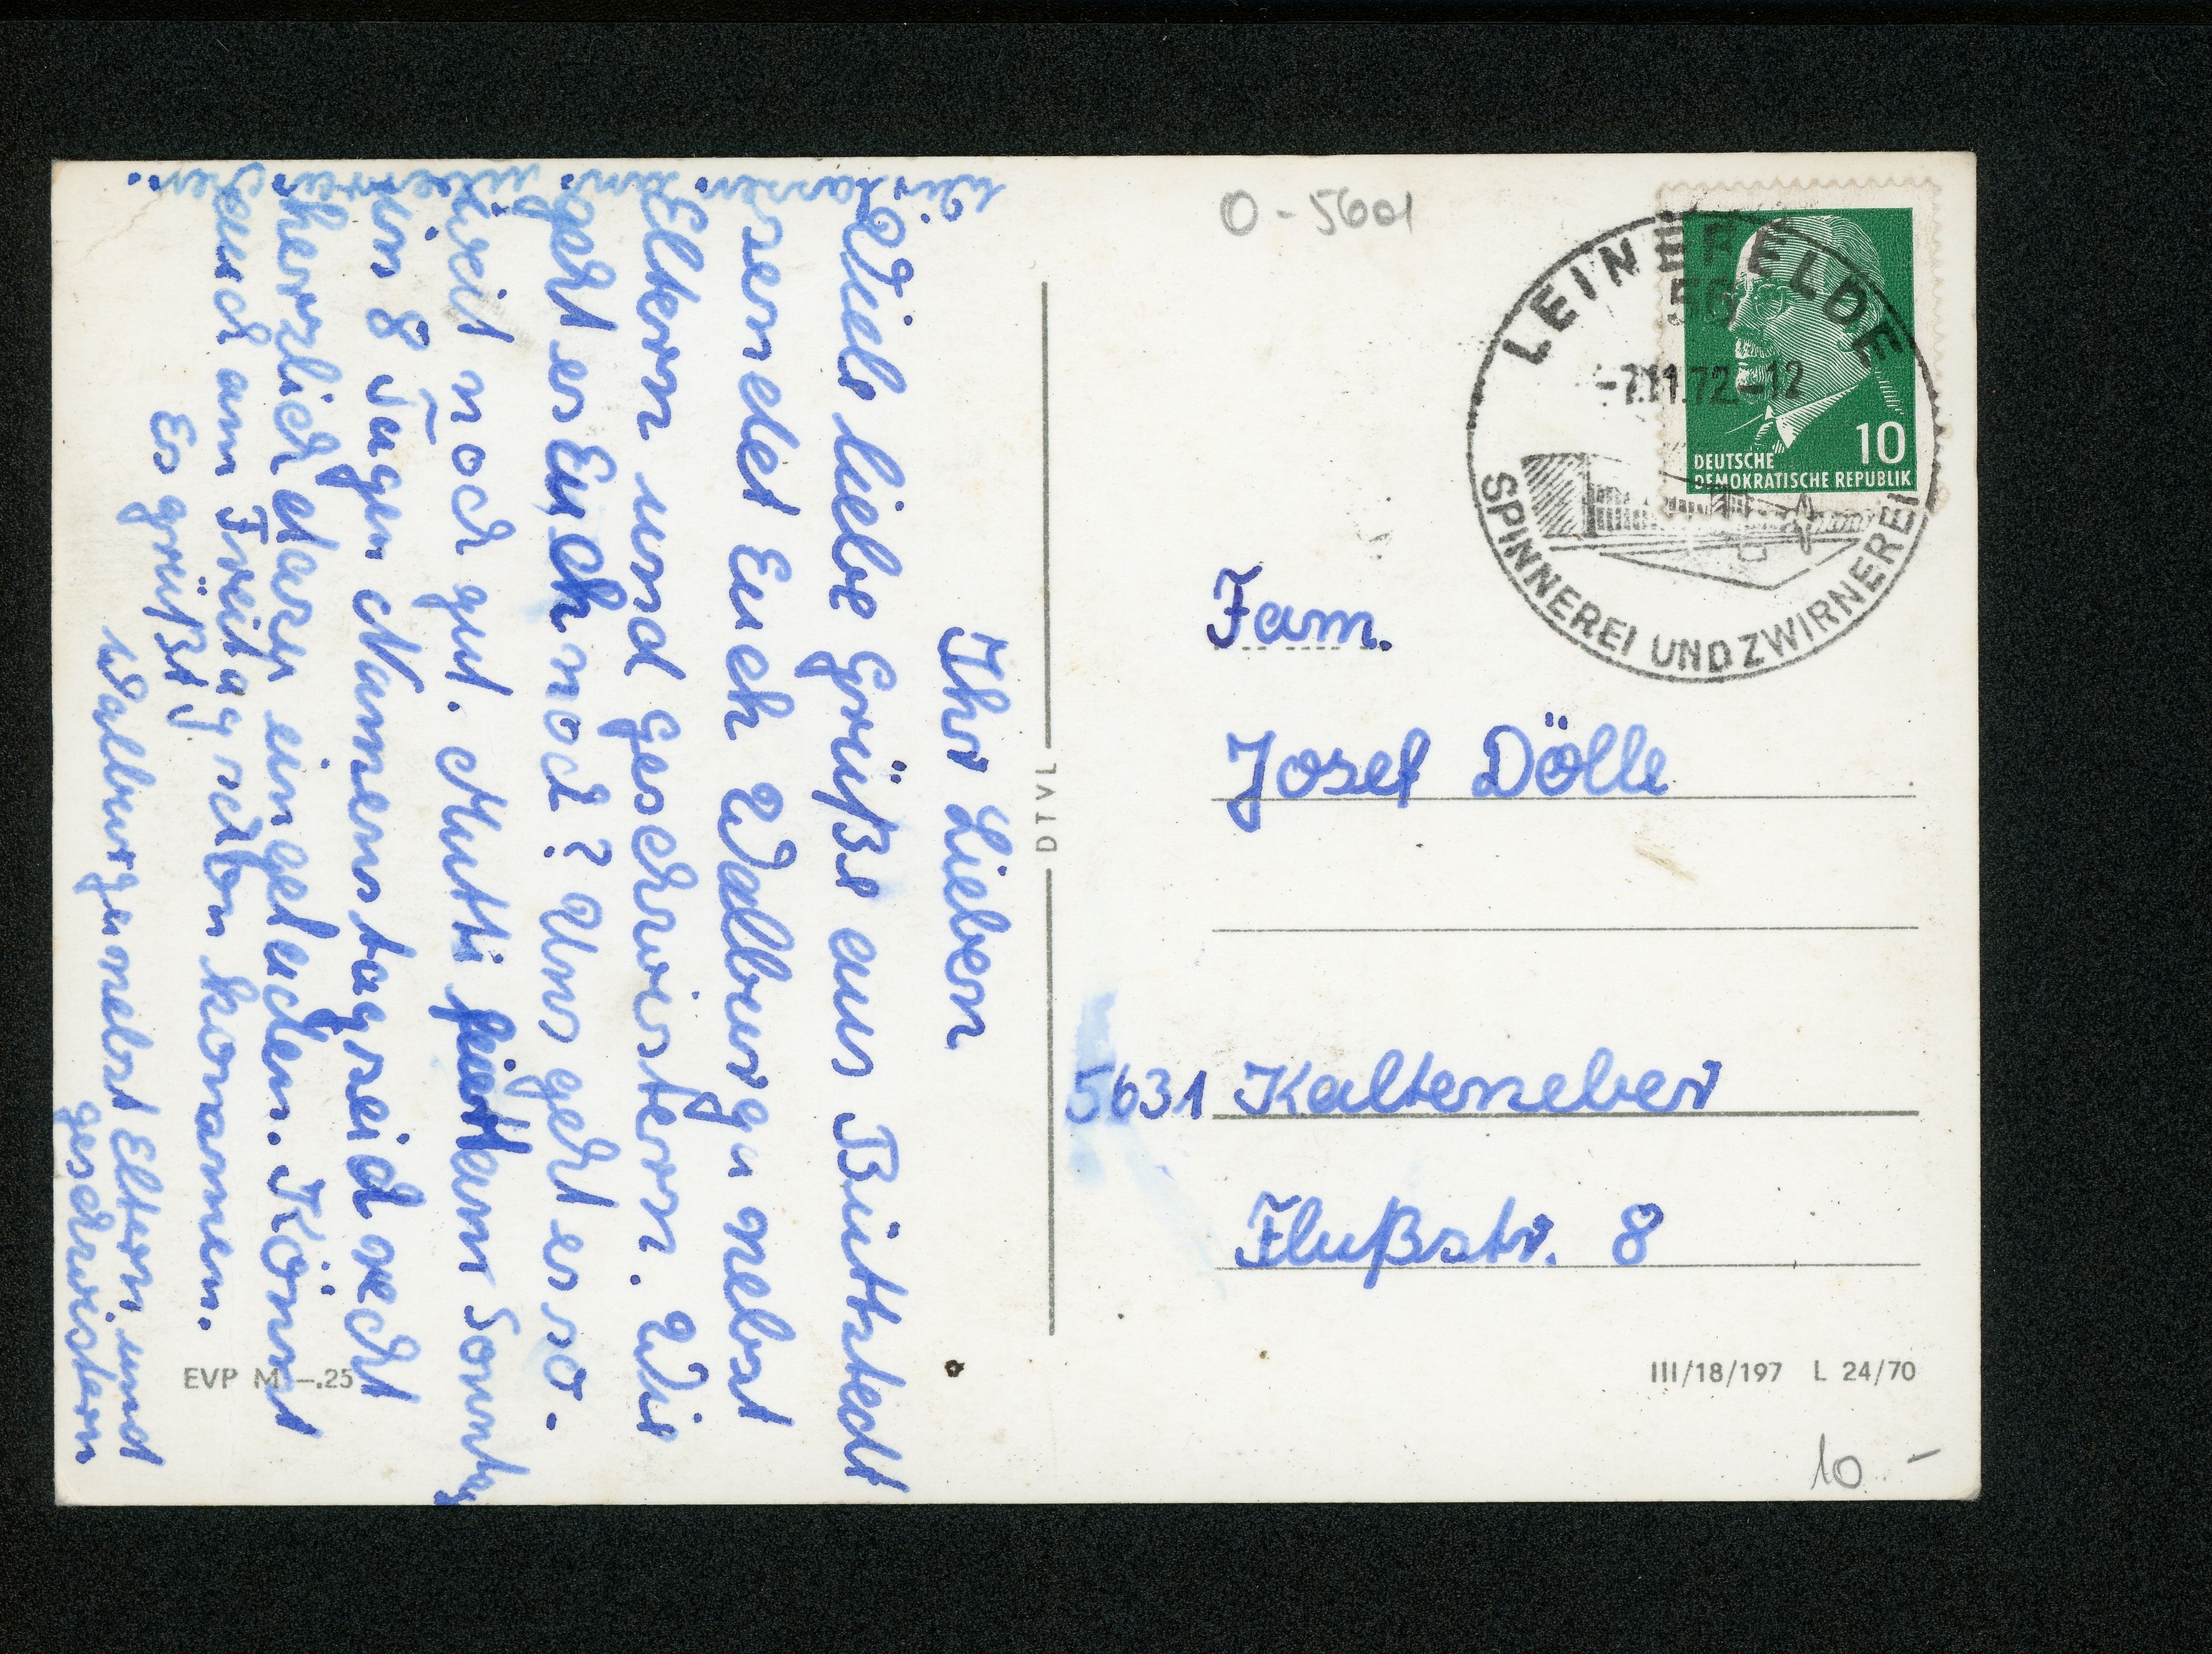 Ihr Lieben
Viele liebe Grüße aus Büttstedt
sendet Euch Walburga nebst
Eltern und Geschwistern. Wie
geht es Euch noch? Uns geht es so-
weit noch gut. Mutti feiert am Sonntag
in 8 Tagen Namenstag seid recht
herzlich dazu eingeladen. Könnt
auch am Freitag schon kommen.
Es grüßt
Walburga nebst Eltern und
Geschwistern
O-5601
LEINEFELDE
56
-7.11.72-12
SPINNEREI UND ZWIRNEREI
10
DEUTSCHE
DEMOKRATISCHE REPUBLIK
Fam.
Josef Dölle
5631 Kalteneber
Flußstr. 8
DTVL
EVP M -.25
III/18/197 L 24/70
10.-